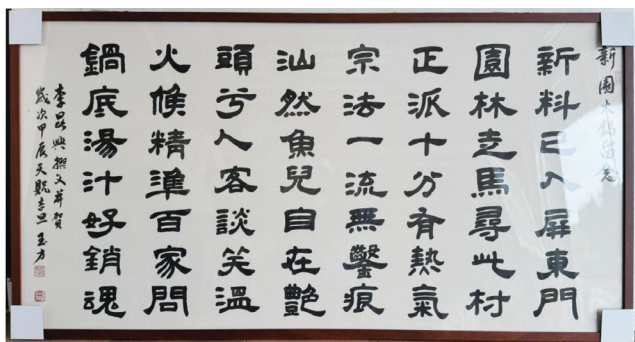 新園火鍋留念
新料已入屏東門
園林走馬尋此村
正派十分有熱氣
宗法一流無鑿痕
汕然魚兒自在艷
頭兮人客談笑溫
火候精準百家問
鍋底湯汁好銷魂
李昆興撰文并賀
歲次甲辰天貺吉旦 玉方